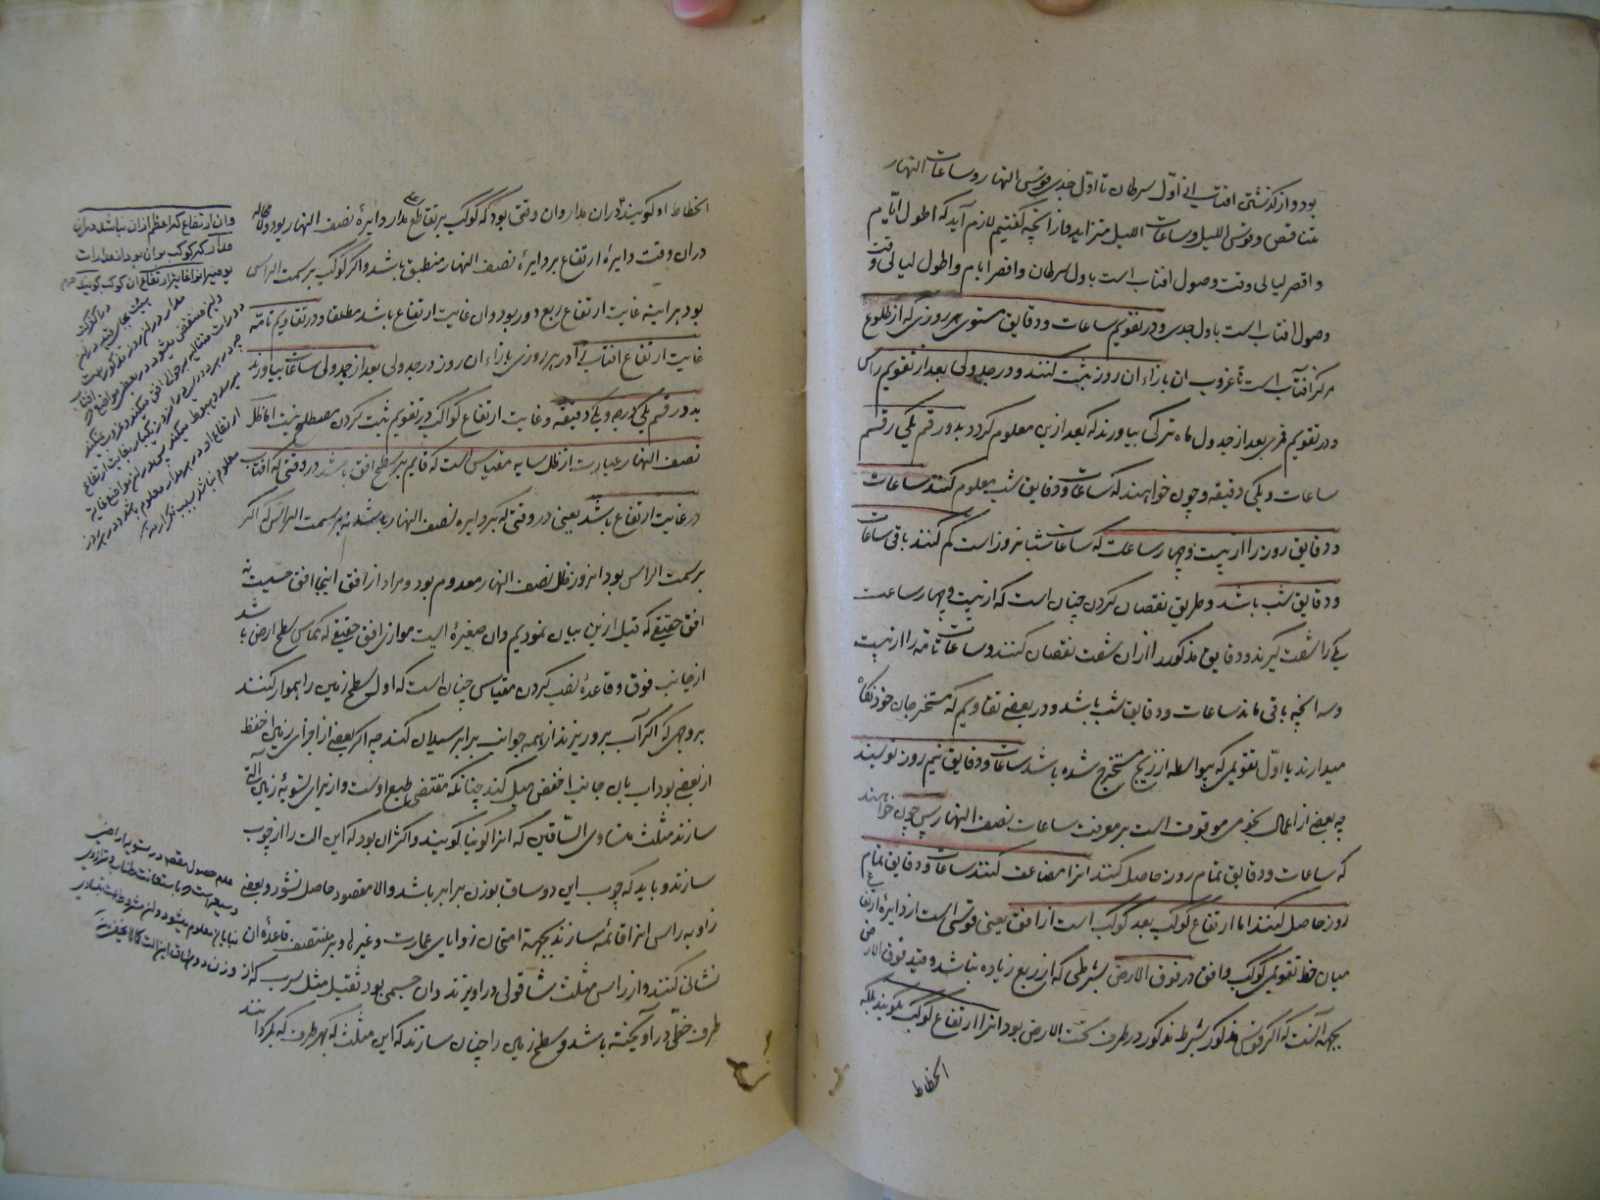 بود و از گذشتن افتاب از اول سرطان تا اول جدی قوس النهار و ساعات النهار
متناقص و قوس اللیل و ساعات اللیل متزاید و از انچه گفتیم لازم آید که اطول ایام
و اقصر لیالی وقت وصول افتاب است باول سرطان و اقصر ایام و اطول لیالی وقت
وصول افتاب است باول جدی و در تقویم ساعات و دقایق مستوی هر روزی که از طلوع
مرکز افتاب است تا غروب ان بازاء ان روز ثبت کنند و در جدولی بعد از تقویم راس
و در تقویم قمری بعد از جدول ماه ترکی بیاورند که بعد ازین معلوم کردد بدو رقم یکی رقم
ساعات و یکی دقیقه و چون خواهند که ساعات و دقایق شب معلوم کنند ساعات
و دقایق روز را از بیست و چهار ساعت که ساعات شبانروز است کم کنند باقی ساعات
و دقایق شب باشد و طریق نقصان کردن چنان است که از بیست و چهار ساعت
یکی را شصت گیرند و دقایق مذکور را از ان شصت نقصان کنند و ساعات تامه را از بیست
و سه انچه باقی ماند ساعات و دقایق شب باشد و در بعضی تقاویم که مستخرجان خود نگاه
میدارند یا اول تقویمی که بیواسطه از زیج مستخرج شده باشد ساعات و دقایق نیم روز نویسند
چه بعضی از اعمال نجومی موقوف است بر معرفت ساعات نصف النهار پس چون خواهند
که ساعات و دقایق تمام روز حاصل کنند انرا مضاعف کنند ساعات و دقایق تمام
روز حاصل کنند اما ارتفاع کوکب بعد کوکب است از افق یعنی قوسی است از دایره ارتفاع
میان خط تقویمی کوکب و افق در فوق الارض بشرطی که از ربع زیاده نباشد و قید فوق الارض
بجهه آنست که اگر قوس مذکور بشرط مذکور در طرف تحت الارض بود انرا ارتفاع کوکب نکویند بلکه
انحطاط
انحطاط او کویند دران مدار وان وقتی بود که کوکب بر تقاطع مدار و دایرهٔ نصف النهار بود
دران وقت دایرهٔ ارتفاع بر دایرهٔ نصف النهار منطبق باشد و اگر کوکب بر سمت الراس
بود هر اینه غایت ارتفاع ربع دور بود وان غایت ارتفاع باشد مطلقا و در تقاویم تامه
غایت ارتفاع افتاب را در هر روزی بازاء ان روز در جدولی بعد از جدولی ساعات بیاورند
بدو رقم یکی درجه و یکی دقیقه و غایت ارتفاع کواکب در تقویم ثبت کردن مصطلح نیست اما ظل
نصف النهار عبارت از ظل سایه مقیاس است که قایم بر سطح افق باشد در وقتی که افتاب
در غایت ارتفاع باشد یعنی در وقتی که بر دایره نصف النهار باشد نه بر سمت الراس که اگر
بر سمت الراس بود انروز ظل نصف النهار معدوم بود و مراد از افق اینجا افق حسیست نه
افق حقیقی که قبل ازین بیان نمودیم وان صغیرهٔ است موازی افق حقیقی که مماس سطح ارض باشد
از جانب فوق و قاعدهٔ نصب کردن مقیاس چنان است که اول سطح زمین را هموار کنند
بر وجهی که اگر آب برو ریزند از همه جوانب برابر سیلان کند چه اگر بعضی از اجزای زمین اخفض
از بعضی بود اب بان جانب اخفض میل کند چنانکه مقتضی طبع اوست و از برای تسویهٔ زمین آلتی
سازند مثلث متساوی الساقین که انرا کونیا کویند و اکثر ان بود که این الت را از چوب
سازند و باید که چوب این دو ساق بوزن برابر باشد و الا مقصود حاصل نشود و بعضی
زاویه راس انرا قائمه سازند بجهة امتحان زوایای عمارت و غیرها و بر منتصف قاعدهٔ ان
نشانی کنند و از راس مثلث شاقولی در اویزند وان جسمی بود ثقیل مثل سرب که از
طرف خطی در آویخته باشد و سطح زمین را چنان سازند که این مثلث که بهر طرف که بگردانند
وان ارتفاع که اعظم ازان نباشد دران
مدار که کوکب بر ان بود از مدارات
یومیه انرا غایة ارتفاع ان کوکب کویند